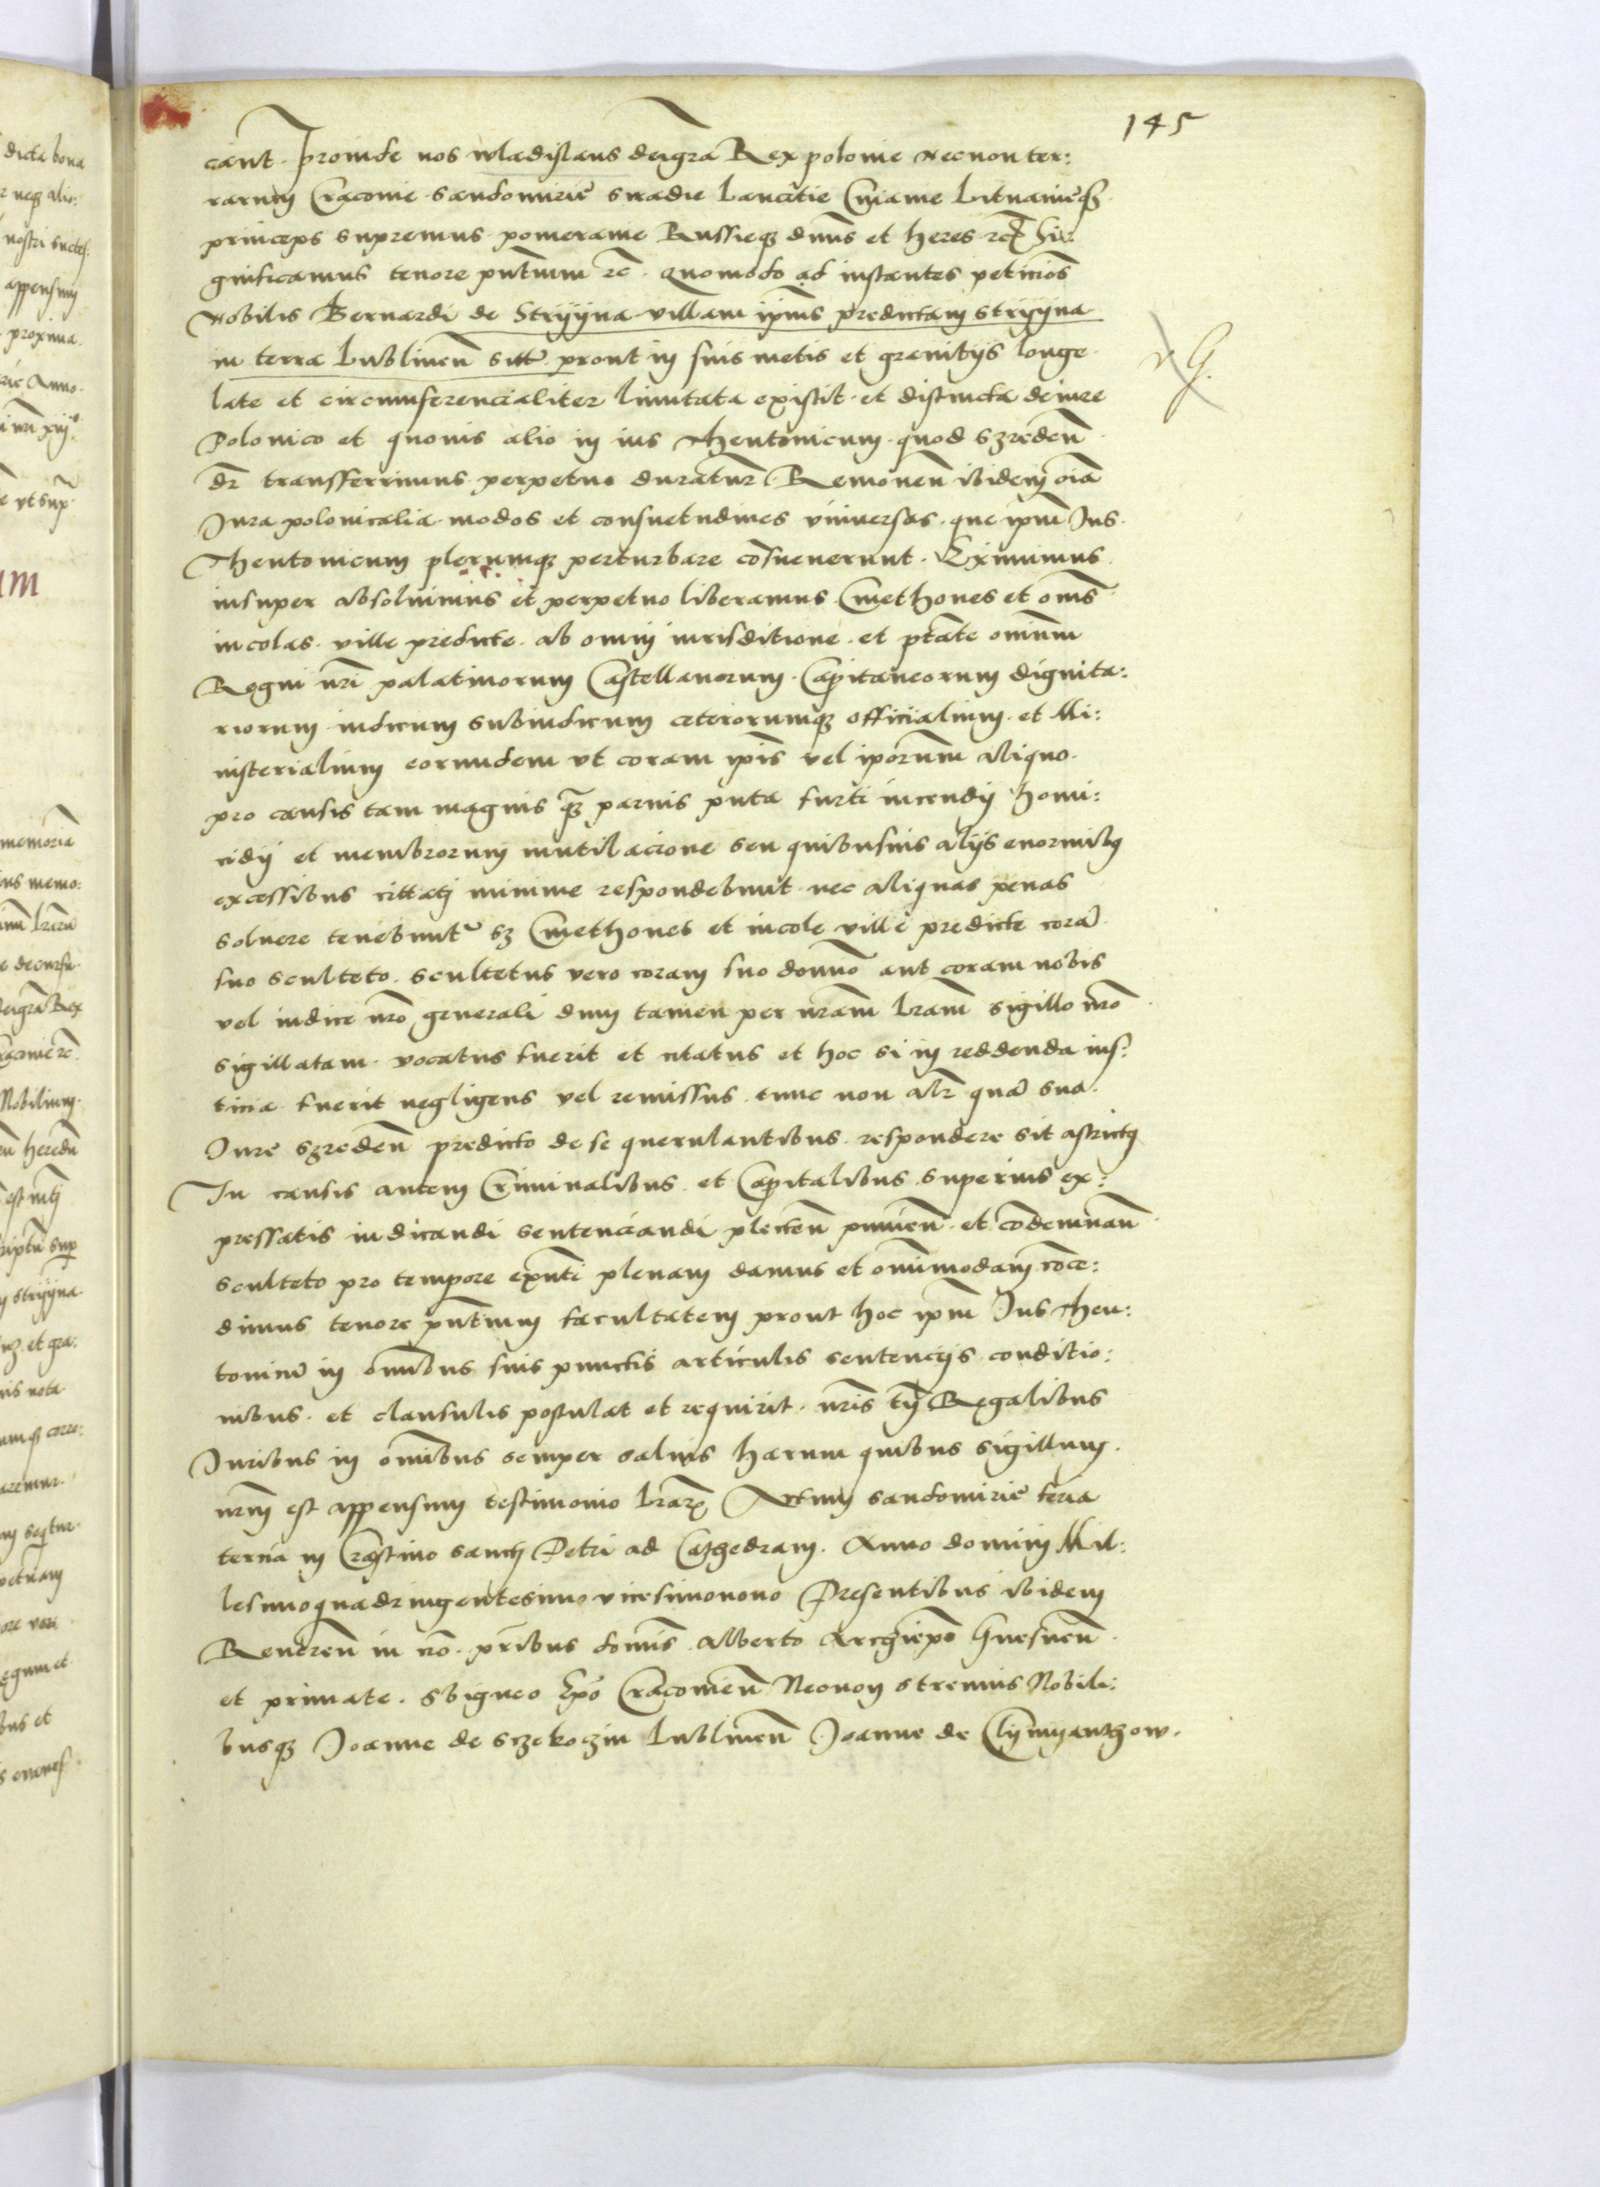 145
cant. Proinde nos wladislaus deigrā Rex polonie Necnon ter:
rarum Cracouie sandomirie siradie Lancicie Cuiauie Lituanieq3
princeps supremus pomeranie Russieq3 dn̄us et heres rc̄ Sig:
gnificamus tenore pn̄tium rc̄. Quomodo ad instantes peticiōes
Nobilis Bernardi de Stryyna villam ipīus predictam stryyna
in terra Lublinen̄ sitā prout in suis metis et granitijs longe
late et circumferencialiter limitata existit et distincta de iure
Polonico et quouis alio in ius Theutonicum quod szreden̄
dr̄ transferrimus perpetuo duratur̄ Remouen̄ ibidem oīa
Jura polonicalia modos et consuetudines vniuersas que ipm̄ Jus
Theutonicum plerumq3 perturbare cōsueuerunt. Eximimus
insuper absoluimus et perpetuo liberamus Cmethones et om̄s
incolas ville predicte ab omni iurisditione et ptāte omnium
Regni nr̄i palatinorum Castellanorum Capitaneorum dignita:
riorum iudicum subiudicum ceterorumq3 officialium et Mi:
nisterialium eorundem vt coram ipīs vel ipōrum aliquo
pro causis tam magnis q̄3 paruis puta furti incendij homi:
cidij et membrorum mutilacione seu quibusuis alijs enormibus
excessibus cittati minime respondebunt nec aliquas penas
soluere tenebuntur s3 Cmethones et incole ville predicte corā
suo sculteto. scultetus vero coram suo domīo aut coram nobis
vel iudice nrō generali dum tamen per nr̄am lr̄am sigillo nrō
sigillatam vocatus fuerit et citatus et hoc si in reddenda ius:
ticia fuerit negligens vel remissus tunc non alr̄ quā suo
Jure szreden̄ predicto de se querulantibus respondere sit astrictus
In causis autem Criminalibus et Capitalibus superius ex:
pressatis iudicandi sentenciandi plecten̄ punien̄ et cōdemnan̄
sculteto pro tempore exn̄ti plenam damus et omnimodam cōce:
dimus tenore pn̄tium facultatem prout hoc ipm̄ Jus Theu:
tonicū in omnibus suis punctis articulis sentencijs conditio:
nibus et clausulis postulat et requirit. nr̄is tn̄ Regalibus
Juribus in omnibus semper saluis Harum quibus sigillum
nrm̄ est appensum testimonio lr̄ar̄ Actum sandomirie feria
tercia in Crastino sancti Petri ad Cathedram. Anno domini Mil:
lesimoquadringentesimo vicesimonono Presentibus ibidem
Reueren̄ in xrō pr̄ibus domīs Alberto Archiepō Gnesnen̄
et primate. Sbigneo Epō Cracouien̄ Necnon strenuis Nobili:
busq3 Joanne de sczekoczin Lublinen̄ Joanne de Clymyanthow.